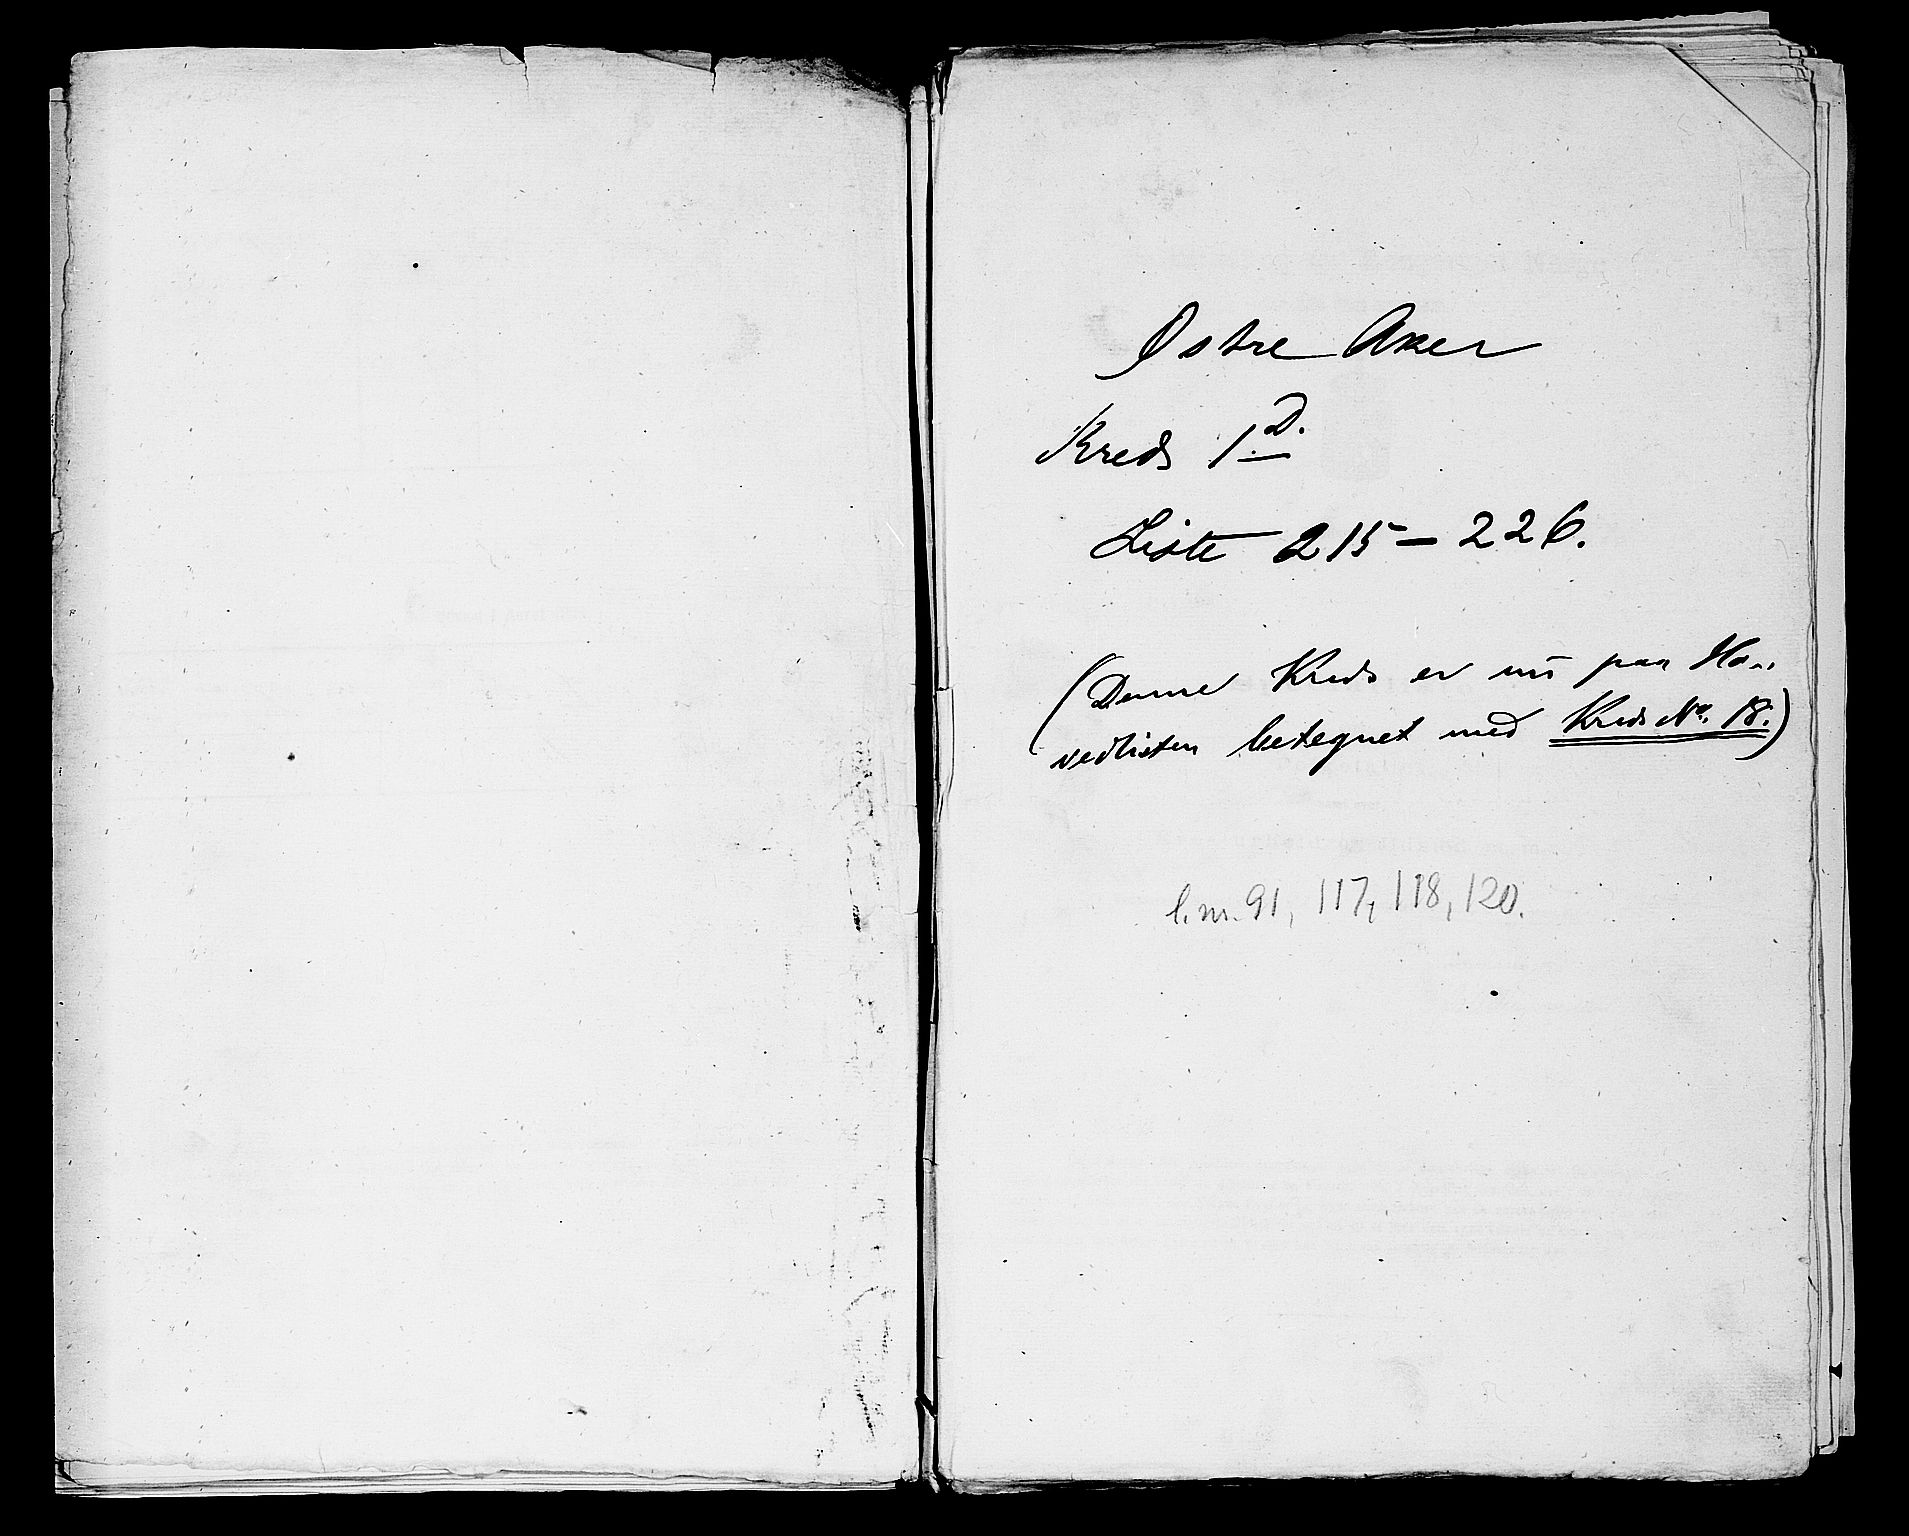 Østre Aker
Kreds 1.D.
Liste 215 – 226.
(Denne Kreds er nu paa Ho-
vedlisten betegnet med Kreds No. 18.)
l.m. 91, 117, 118, 120.